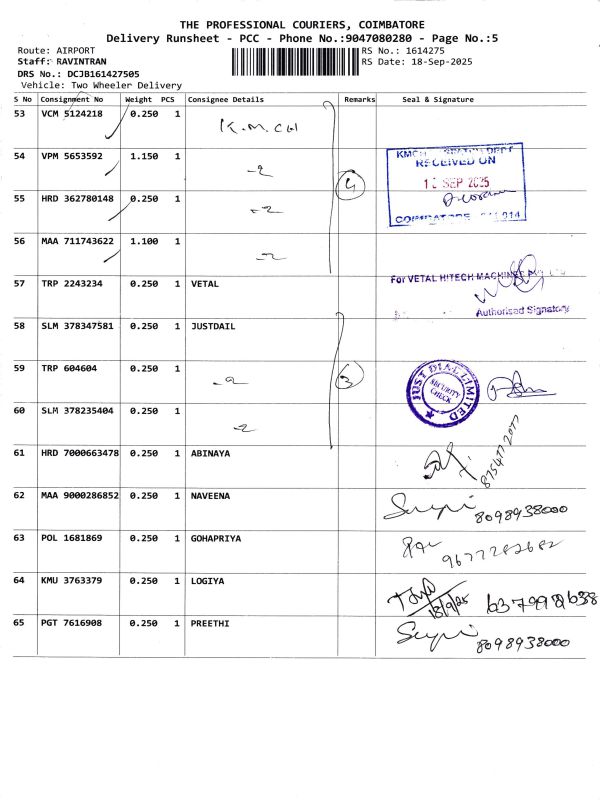 THE PROFESSIONAL COURIERS, COIMBATORE
Delivery Runsheet - PCC - Phone No.:9047080280 - Page No.:5
Route: AIRPORT RS No.: 1614275
Staff: RAVINTRAN RS Date: 18-Sep-2025
DRS No.: DCJB161427505
Vehicle: Two Wheeler Delivery
S No Consignment No Weight PCS Consignee Details Remarks Seal & Signature
53 VCM 5124218 0.250 1 K.M.CH
54 VPM 5653592 1.150 1
KMCH
RECEIVED ON
SEP 2025
COIMBATORE 641 014
4
55 HRD 362780148 0.250 1
56 MAA 711743622 1.100 1
57 TRP 2243234 0.250 1 VETAL
For VETAL HITECH MACHINES PVT LTD
Authorised Signatory
58 SLM 378347581 0.250 1 JUSTDAIL
59 TRP 604604 0.250 1 3
JUST DIAL LIMITED
SECURITY CHECK
60 SLM 378235404 0.250 1
61 HRD 7000663478 0.250 1 ABINAYA
62 MAA 9000286852 0.250 1 NAVEENA 8098938000
63 POL 1681869 0.250 1 GOHAPRIYA 9677282682
64 KMU 3763379 0.250 1 LOGIYA 18/9/25
65 PGT 7616908 0.250 1 PREETHI 8098938000